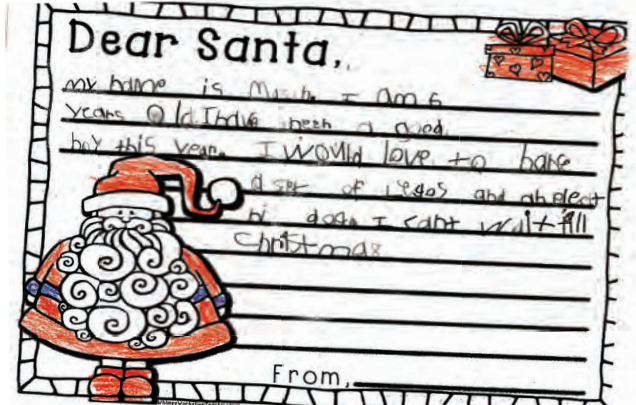 Dear Santa,
my name is I am 6
years old I have been a good
boy this year. I would love to have
a set of Legos and an elect
ri dog. I cant wait till
Christmas
From,